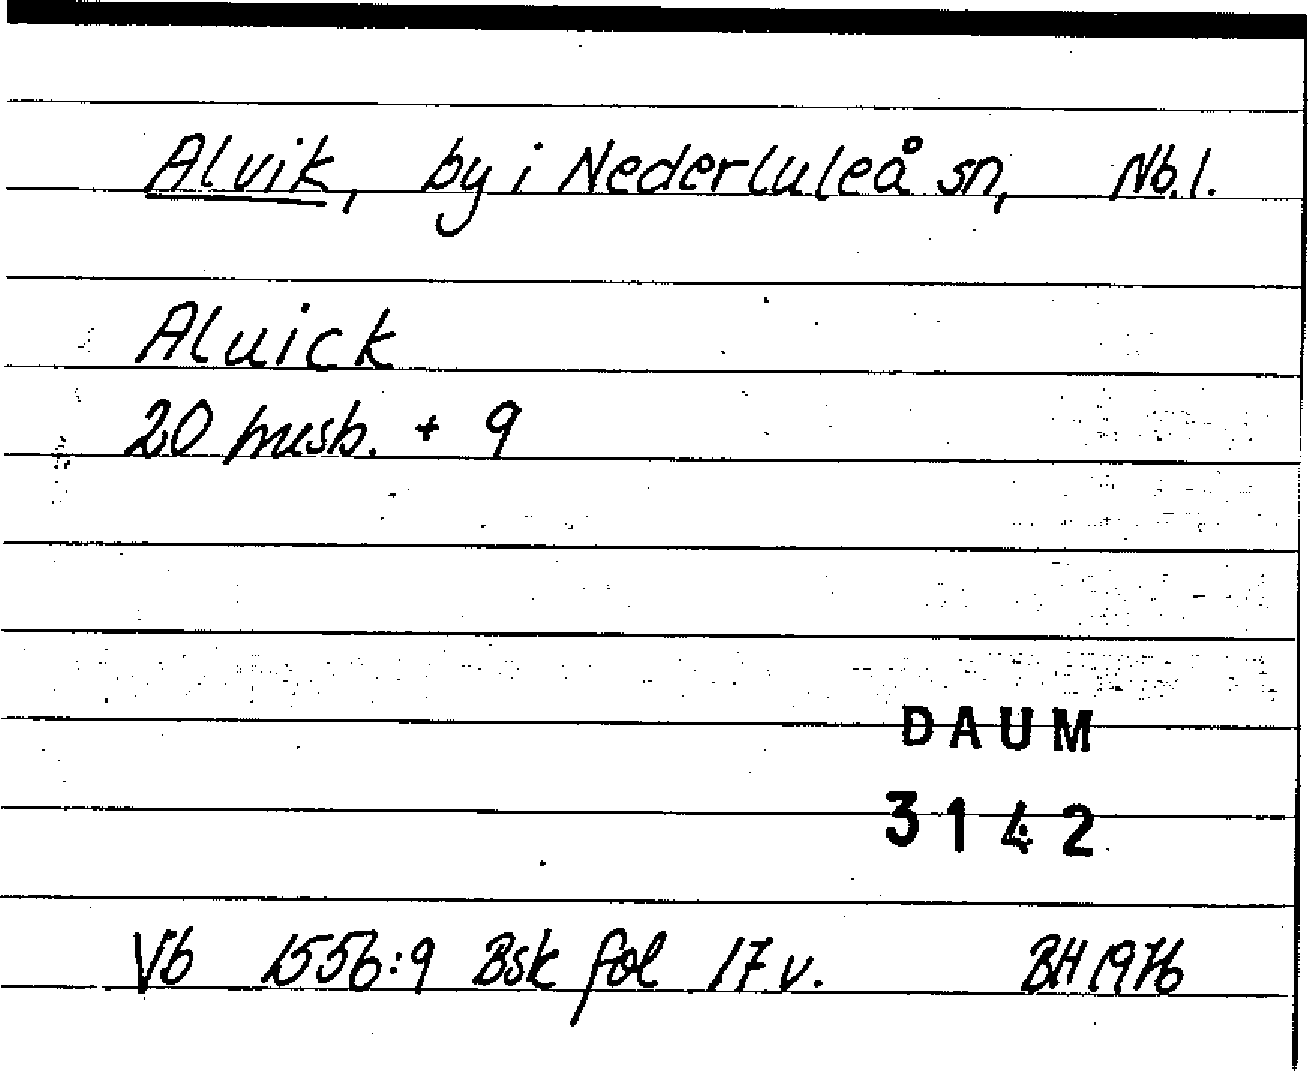 Alvik, by i Nederluleå sn, Nb.l.
Aluick
20 mesb. + 9
DAUM
3142
Vb 1556:9 Bsk fol 17 v. BH 1976